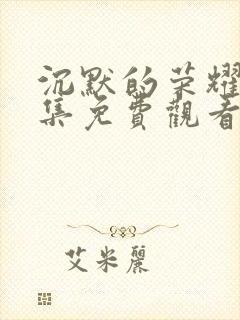 沉默的荣耀
集免費觀看
艾米麗